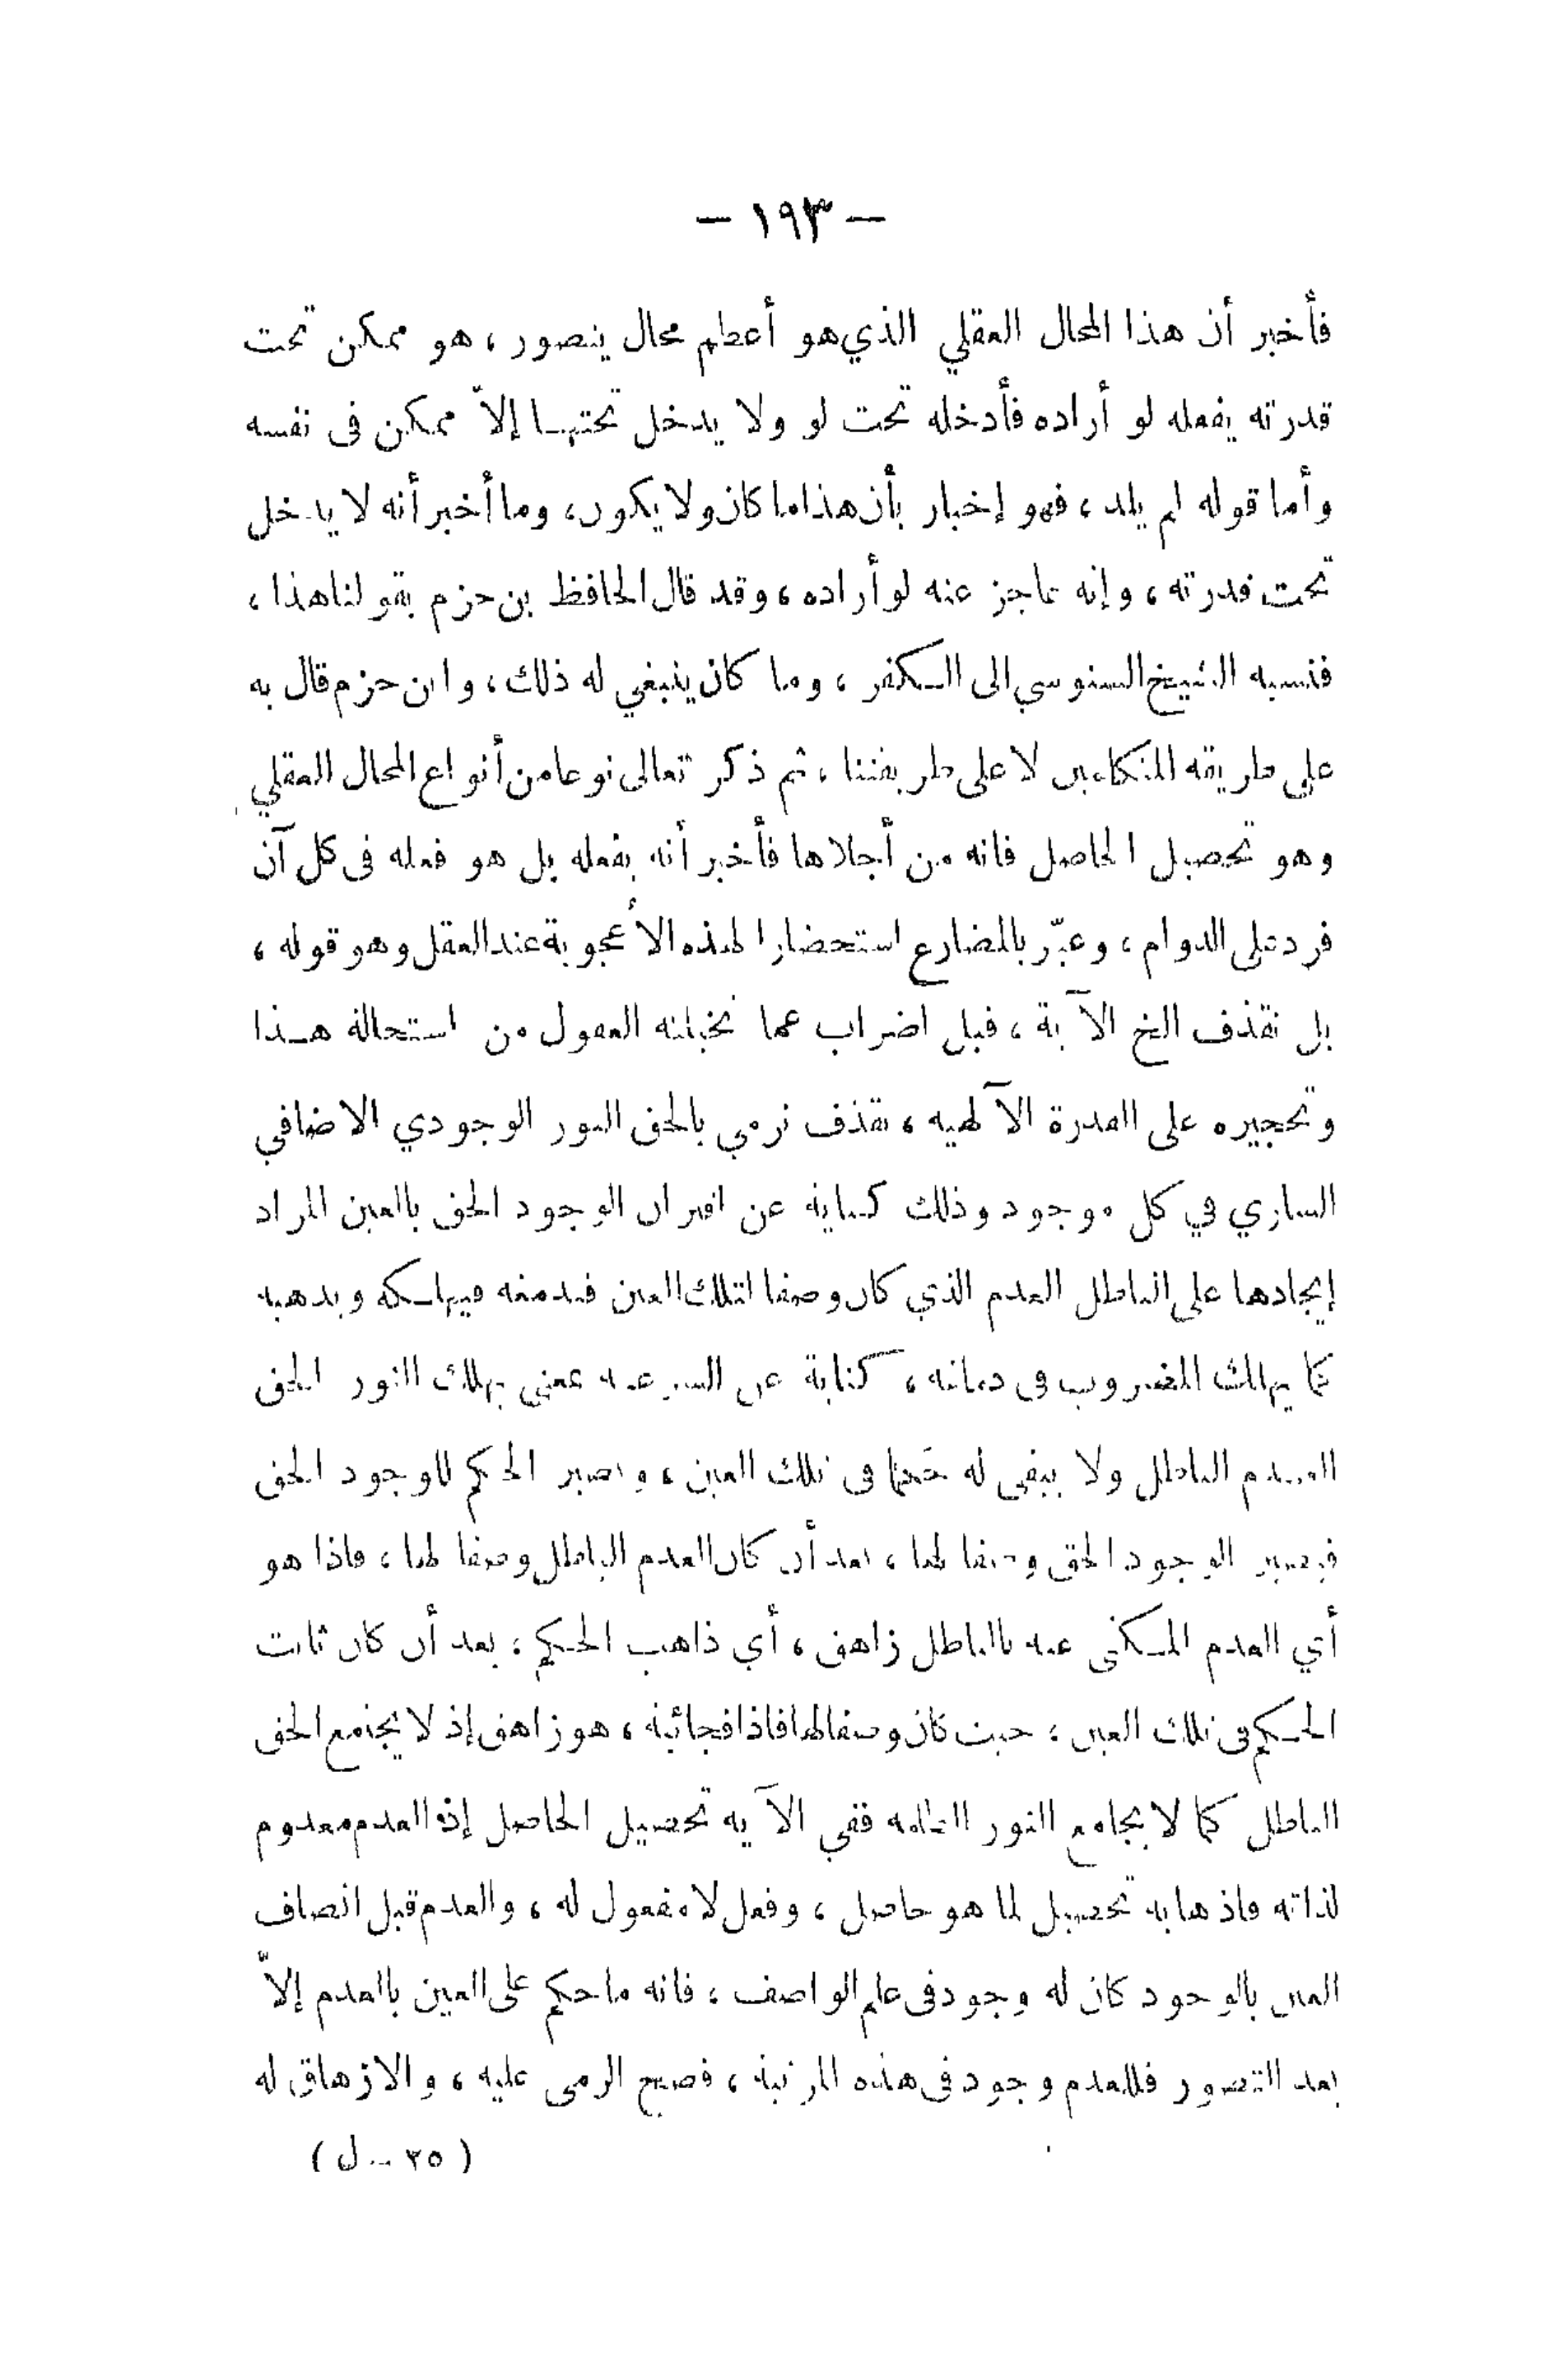 — ١٩٣ —
فأخبر أن هذا المحال العقلي الذي هو أعظم محال يتصور ، هو ممكن تحت
قدرته يفعله لو أراده فأدخله تحت لو ولا يدخل تحتها إلاّ ممكن فى نفسه
وأما قوله لم يلد ، فهو إخبار بأن هذا ما كان ولا يكون ، وما أخبر أنه لا يدخل
تحت قدرته ، وإنه عاجز عنه لو أراده ، وقد قال الحافظ بن حزم بقولنا هذا ،
فنسبه الشيخ السنوسي الى الكفر ، وما كان ينبغي له ذلك ، وابن حزم قال به
على طريقة المتكلمين لا على طريقتنا ، ثم ذكر تعالى نوعا من أنواع المحال العقلي
وهو تحصيل الحاصل فانه من أجلاها فأخبر أنه يفعله بل هو فعله فى كل آن
فرد على الدوام ، وعبّر بالمضارع استحضارا لهذه الأعجوبة عند العقل وهو قوله ،
بل نقذف الخ الآية ، فبل اضراب عما تخيلته العقول من استحالة هذا
وتحجيره على القدرة الآلهية ، نقذف نرمي بالحق النور الوجودي الاضافي
الساري في كل موجود وذلك كناية عن اقتران الوجود الحق بالعين المراد
إيجادها على الباطل العدم الذي كان وصفا لتلك العين فيدمغه فيهلكه ويذهبه
كما يهلك المضروب فى دماغه ، كناية عن السرعة بمعنى يهلك النور الحق
العدم الباطل ولا يبقى له حكما فى تلك العين ، ويصير الحكم للوجود الحق
فيصير الوجود الحق وصفا لها ، بعد أن كان العدم الباطل وصفا لها ، فاذا هو
أي العدم المكنى عنه بالباطل زاهق ، أي ذاهب الحكم ، بعد أن كان ثابت
الحكم فى تلك العين ، حيث كان وصفا لها فاذا فجائية ، هو زاهق إذ لا يجتمع الحق
الباطل كما لا يجامع النور الظلمة ففي الآية تحصيل الحاصل إذ العدم معدوم
لذاته فاذهابه تحصيل لما هو حاصل ، وفعل لا مفعول له ، والعدم قبل اتصاف
العين بالوجود كان له وجود فى علم الواصف ، فانه ما حكم على العين بالعدم إلاّ
بعد التصور فللعدم وجود فى هذه المرتبة ، فصح الرمى عليه ، والازهاق له
( ٢٥ – ل )